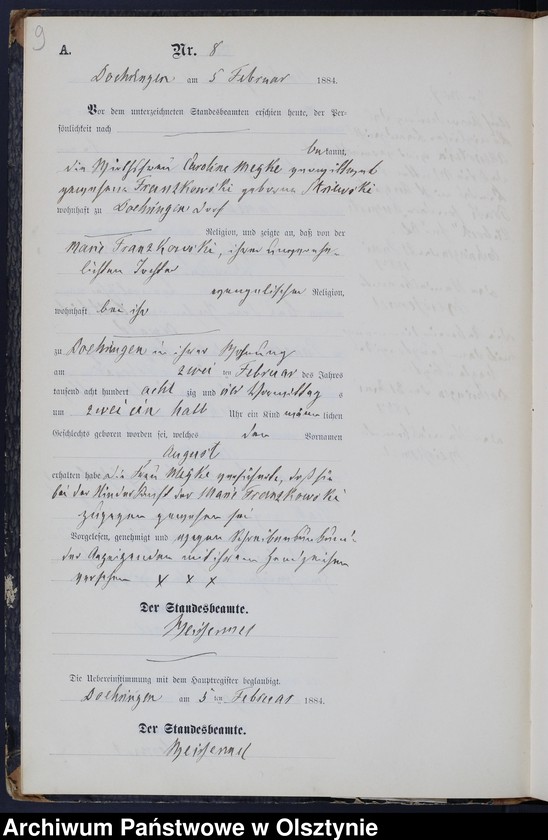 9
A. Nr. 8
Doehringen am 5 Februar 1884.
Vor dem unterzeichneten Standesbeamten erschien heute, der Per-
sönlichkeit nach
bekannt,
die Wirthsfrau Caroline Meyke verwittwet
gewesene Franzkowski geborne
wohnhaft zu Doehringen Dorf
Religion, und zeigte an, daß von der
Marie Franzkowski, ihrer unverehe-
lichten Tochter
evangelischer Religion,
wohnhaft bei ihr
zu Doehringen in ihrer Wohnung
am zwei ten Februar des Jahres
tausend acht hundert acht zig und vier Vormittag s
um zwei ein halb Uhr ein Kind männ lichen
Geschlechts geboren worden sei, welches den Vornamen
August
erhalten habe die Frau Meyke versicherte, daß sie
bei der Niederkunft der Marie Franzkowski
zugegen gewesen sei
Vorgelesen, genehmigt und wegen Schreibensunkunde
der Anzeigenden mit ihrem Handzeichen
versehen x x x
Der Standesbeamte.
Meissermel
Die Uebereinstimmung mit dem Hauptregister beglaubigt.
Doehringen am 5 ten Februar 1884.
Der Standesbeamte.
Meissermel
Archiwum Państwowe w Olsztynie